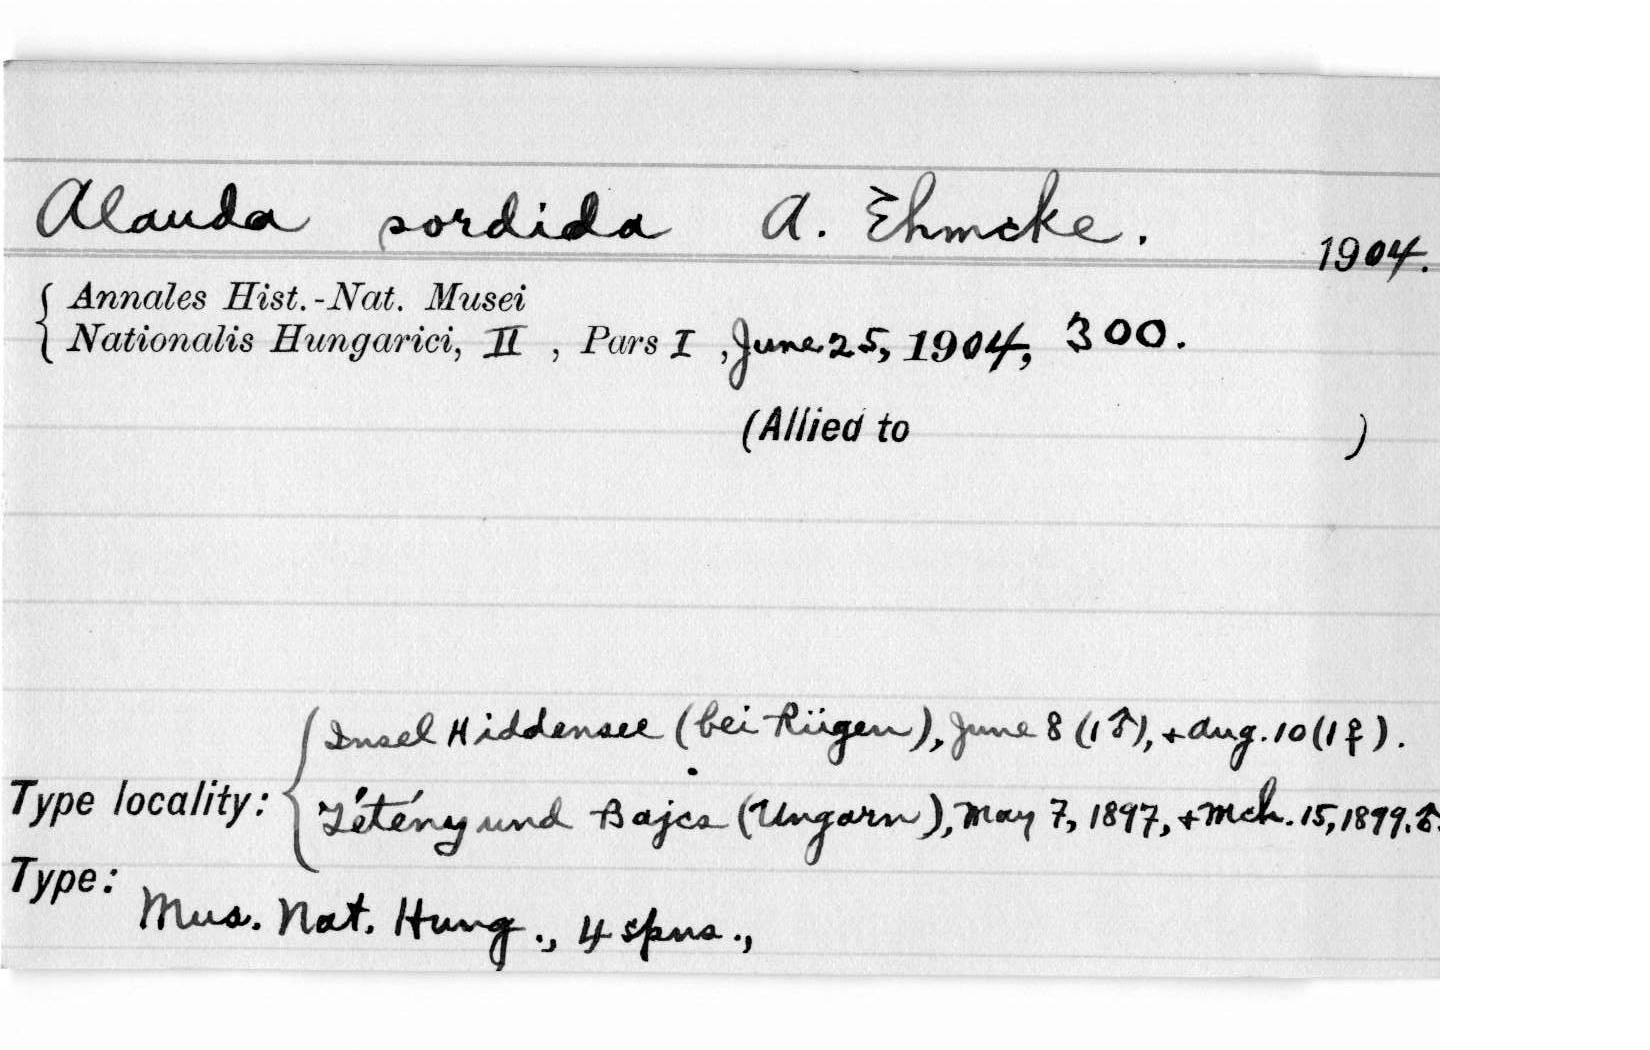 Alauda sordida A. Ehmcke.
1904.
Annales Hist.-Nat. Musei
Nationalis Hungarici, II , Pars I , June 25, 1904, 300.
(Allied to )
Insel Hiddensee (bei Rügen), June 8 (1♂), + Aug. 10 (1♀).
Type locality:
Tétény und Bajcs (Ungarn), May 7, 1897, + Mch. 15, 1899. ♂.
Type:
Mus. Nat. Hung., 4 spns.,